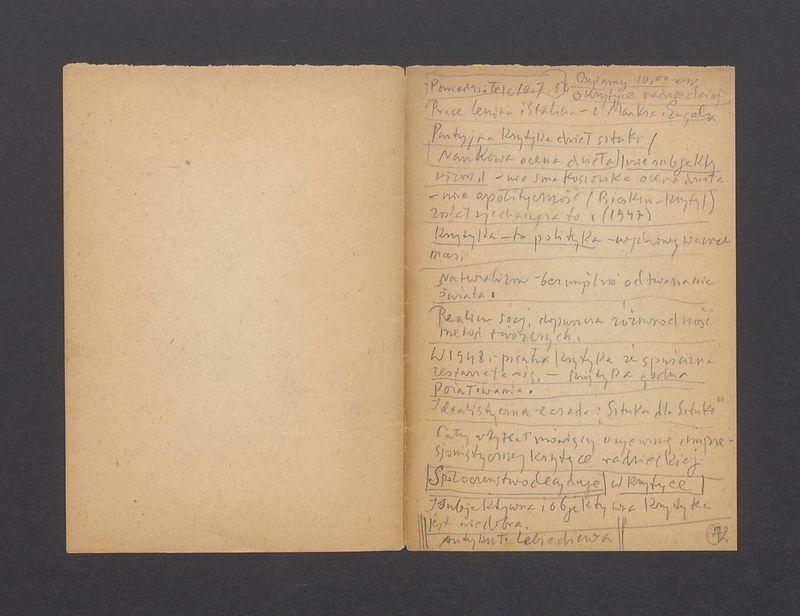 Poniedziałek 10.7.50 Omawiamy 10,00
o krytyce radzieckiej
Prace Lenina i Stalina - i Marksa Engelsa
Partyjna krytyka dzieł sztuki /
Naukowa ocena dzieła / nie subjekty
wizm, - nie smakoszowska ocena dzieła
- nie apolityczność / (Bieskin - krytyk)
został zjechany za to. (1947)
Krytyka - to polityka - wychowywanie
mas.
Naturalizm - bezmyślne odtwarzanie
świata.
Realizm socj. dopuszcza różnorodność
metod twórczych.
W 1948 r. pisała krytyka że spuścizna
zestarzała się, - krytyka godna
pożałowania.
Idealistyczna zasada: "Sztuka dla Sztuki"
Cały artykuł mówiący o ujemnej impre-
sjonistycznej krytyce radzieckiej.
Społeczeństwo decyduje w krytyce
I subjektywna i objektywna krytyka
jest niedobra.
Artykuł. Lebiediewa
72